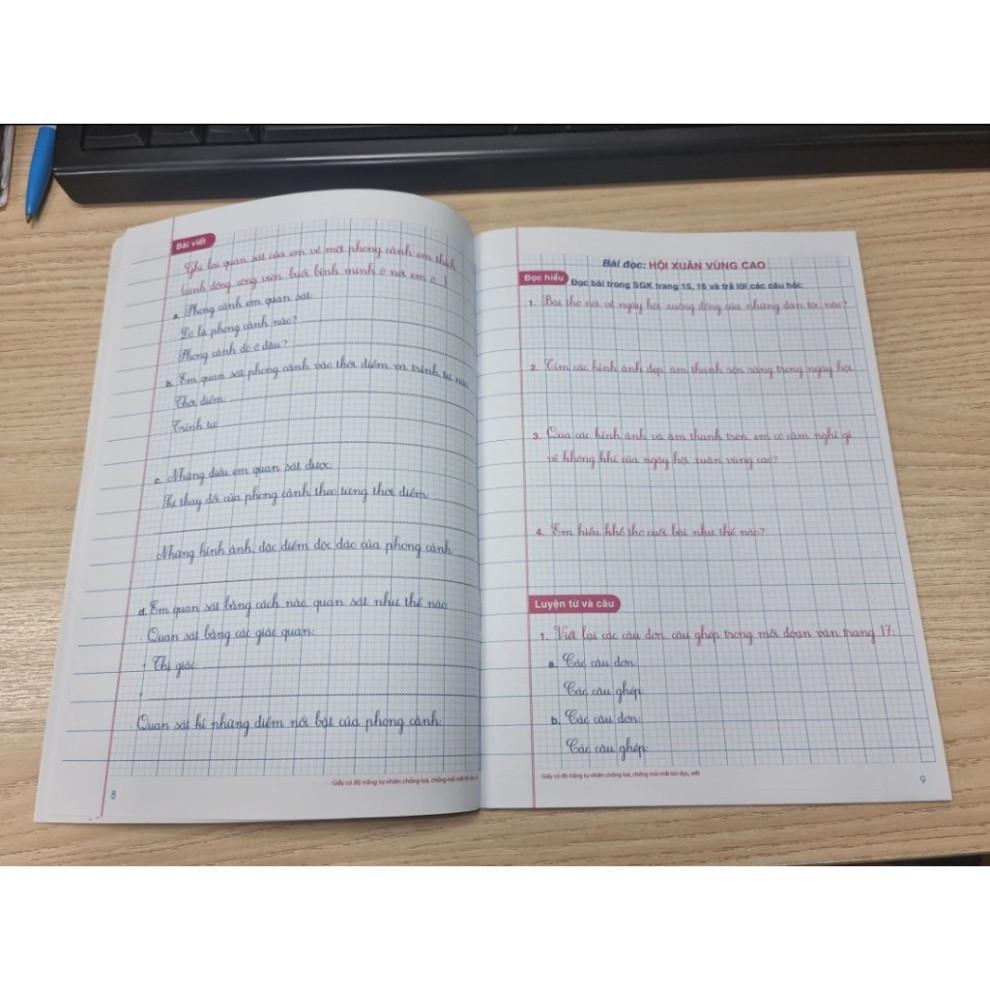 Bài viết
Ghi lại quan sát của em về một phong cảnh em thích
(cánh đồng, công viên, buổi bình minh ở nơi em ở...)
a. Phong cảnh em quan sát:
Đó là phong cảnh nào?
Phong cảnh đó ở đâu?
b. Em quan sát phong cảnh vào thời điểm và trình tự nào
Thời điểm:
Trình tự:
c. Những điều em quan sát được
Sự thay đổi của phong cảnh theo từng thời điểm:
Những hình ảnh, đặc điểm độc đáo của phong cảnh
d. Em quan sát bằng cách nào, quan sát như thế nào
Quan sát bằng các giác quan:
+ Thị giác:
+
Quan sát kĩ những điểm nổi bật của phong cảnh:
Giấy có độ trắng tự nhiên chống loá, chống mỏi mắt khi đọc,
8
Bài đọc: HỘI XUÂN VÙNG CAO
Đọc hiểu
Đọc bài trong SGK trang 15, 16 và trả lời các câu hỏi:
1. Bài thơ nói về ngày hội xuống đồng của những dân tộc nào?
2. Tìm các hình ảnh đẹp, âm thanh sôn sàng trong ngày hội
3. Qua các hình ảnh và âm thanh trên, em có cảm nghĩ gì
về không khí của ngày hội xuân vùng cao?
4. Em hiểu khổ thơ cuối bài như thế nào?
Luyện từ và câu
1. Viết lại các câu đơn, câu ghép trong mỗi đoạn văn trang 17:
a. Các câu đơn:
Các câu ghép:
b. Các câu đơn:
Các câu ghép:
Giấy có độ trắng tự nhiên chống loá, chống mỏi mắt khi đọc, viết
9